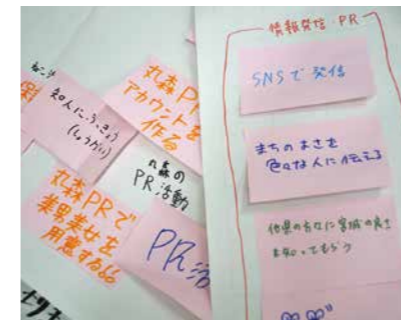 情報発信・PR
SNSで発信
まちのよさを
色々な人に伝える
他県の方々に宮城の良さ
を知ってもらう
丸森PR
アカウントを
作る
知人に
丸森の
PR活動
丸森PRで
美男美女を
用意する
PR活